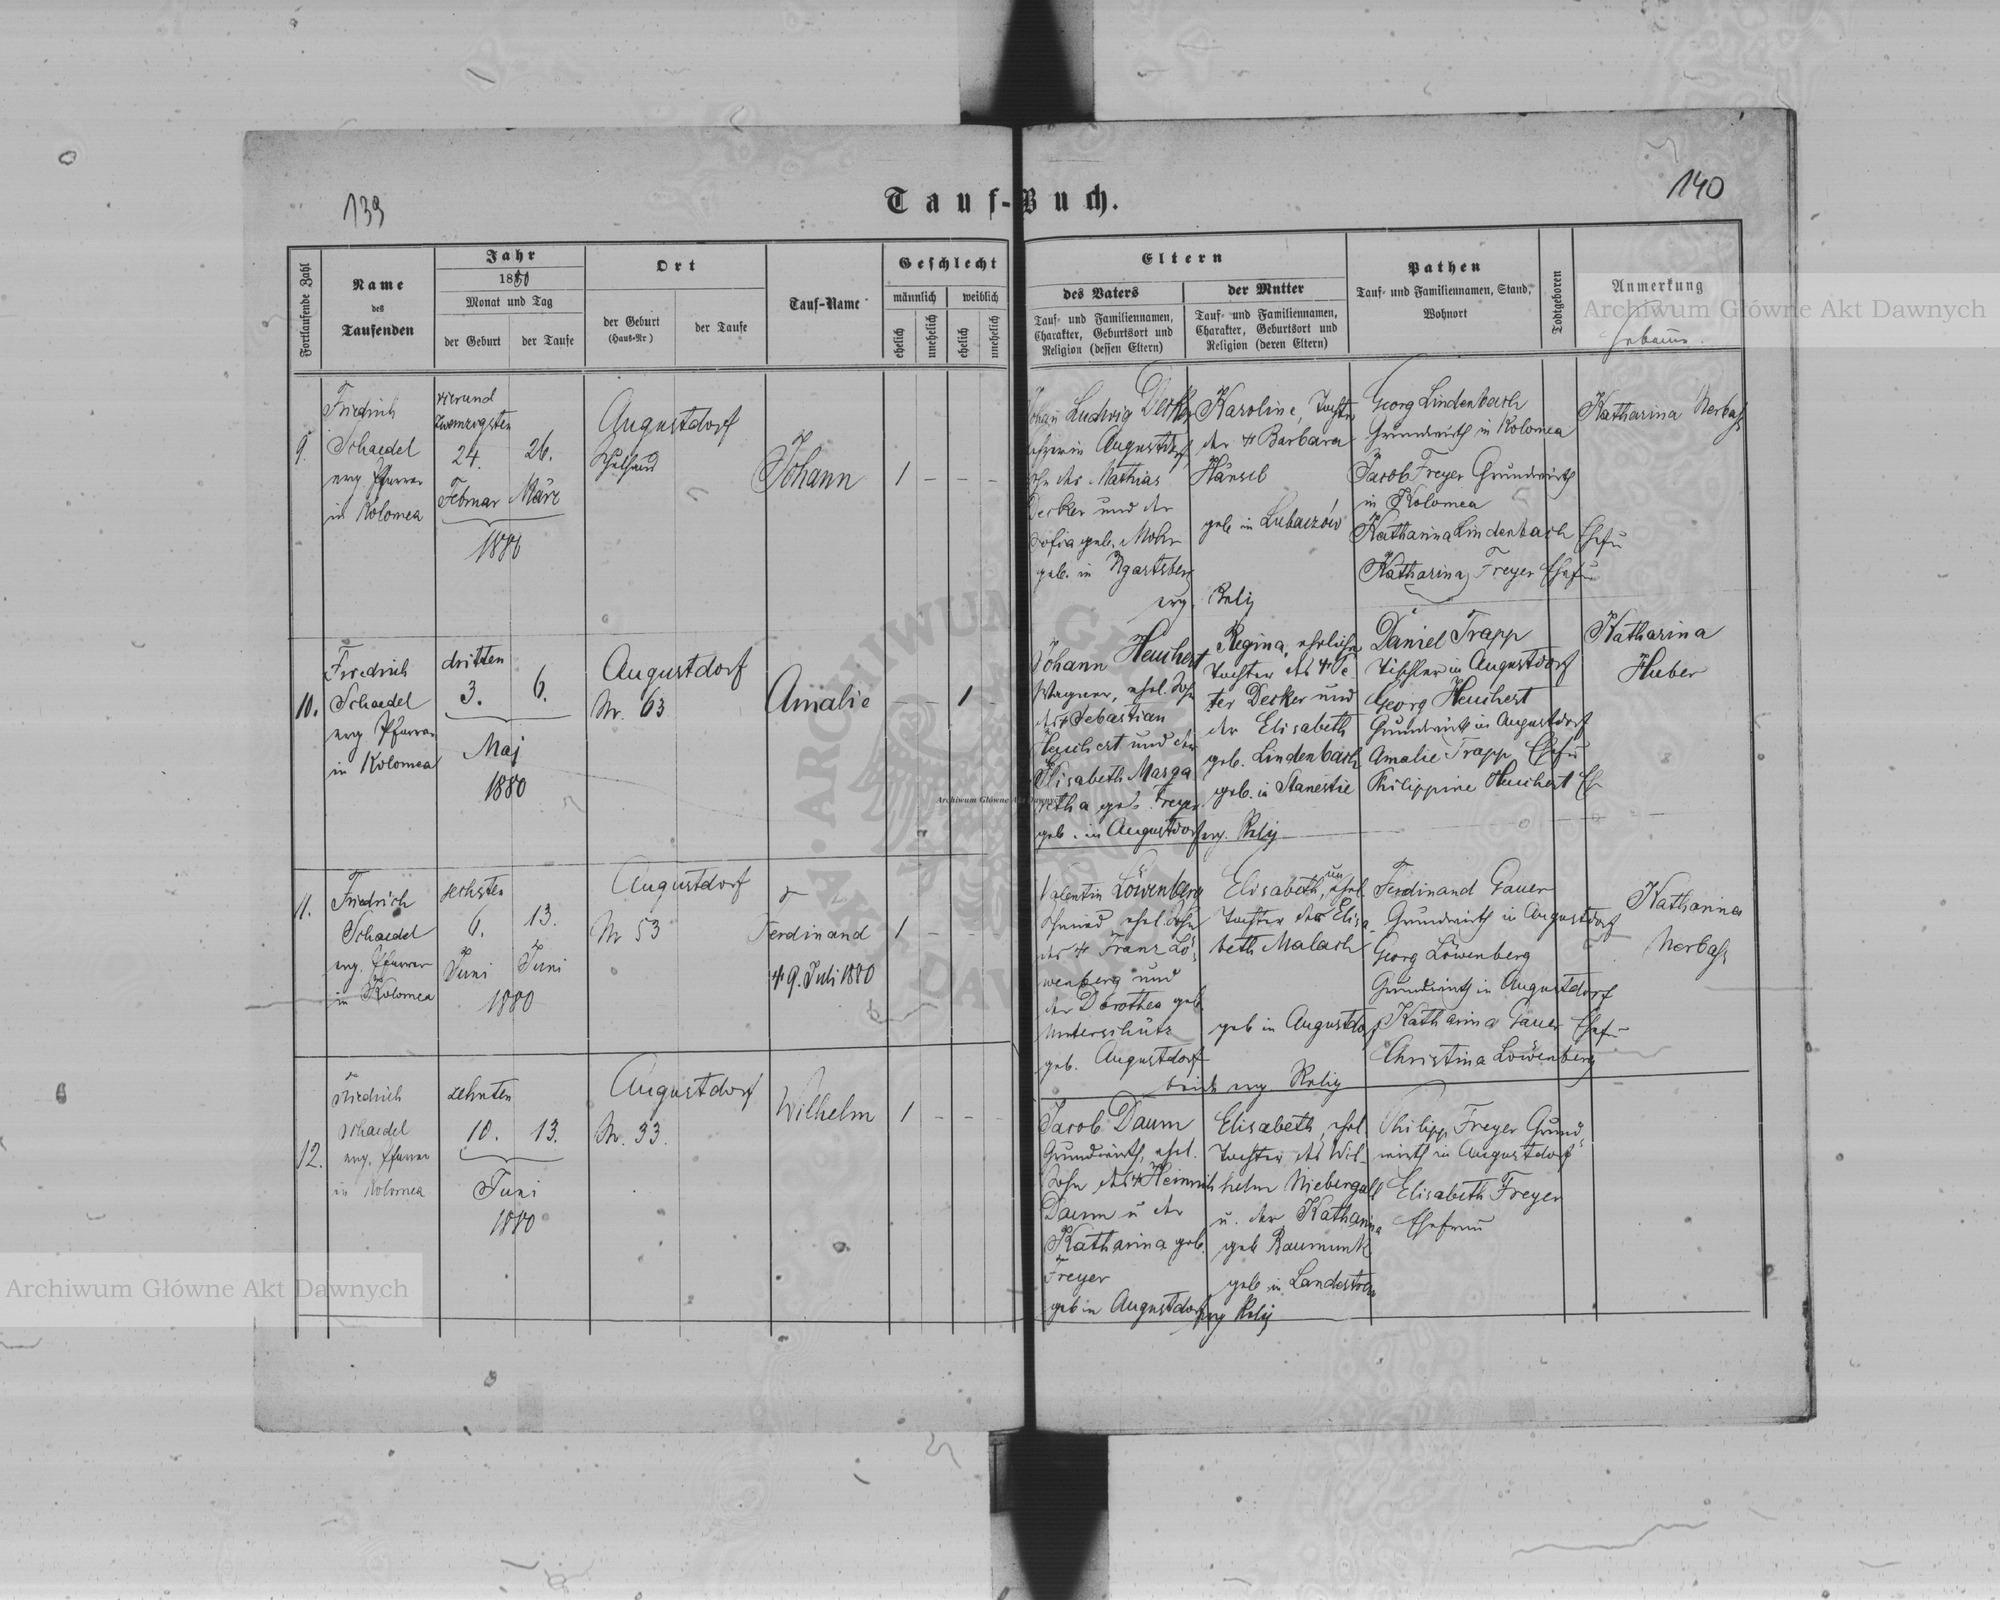 139
140
Tauf-Buch.
Fortlaufende Zahl
Name
des
Taufenden
Jahr
1880
Monat und Tag
der Geburt
der Taufe
Ort
der Geburt
(Haus-Nr)
der Taufe
Tauf-Name
Geschlecht
männlich
weiblich
ehelich
unehelich
ehelich
unehelich
Eltern
des Vaters
Tauf- und Familiennamen,
Charakter, Geburtsort und
Religion (dessen Eltern)
der Mutter
Tauf- und Familiennamen,
Charakter, Geburtsort und
Religion (deren Eltern)
Pathen
Tauf- und Familiennamen, Stand,
Wohnort
Todtgeboren
Anmerkung
9.
Friedrich
Schaedel
evg. Pfarrer
in Kolomea
vierund
zwanzigsten
24.
26.
Februar
März
1880
Augustdorf
Schulhaus
Johann
1 – – –
Johann Ludwig Decker
Lehrer in Augustdorf
Sohn des Mathias
Decker und der
Sofia geb. Mohr
geb. in Ugartsberg
Karoline, Tochter
der + Barbara
Hänsel
geb in Lubaczów
evg. Relig
Georg Lindenbach
Grundwirth in Kolomea
Jacob Freyer Grundwirth
in Kolomea
Katharina Lindenbach Ehefr
Katharina Freyer Ehefr
Katharina Nerbaß
10.
Friedrich
Schaedel
evg Pfarrer
in Kolomea
dritten
3.
6.
Maj
1880
Augustdorf
Nr. 63
Amalie
– – 1 –
Johann Heuchert
Wagner, ehel. Sohn
des + Sebastian
Heuchert und der
Elisabeth Marga
retha geb. Freyer
geb. in Augustdorf
Regina, eheliche
Tochter des + Pe
ter Decker und
der Elisabeth
geb. Lindenbach
geb. in Stanestie
evg. Relig
Daniel Trapp
Tischler in Augustdorf
Georg Heuchert
Grundwirth in Augustdorf
Amalie Trapp Ehefr
Philippine Heuchert Eh
Katharina
Huber
11.
Friedrich
Schaedel
evg. Pfarrer
in Kolomea
sechsten
6.
13.
Juni
Juni
1880
Augustdorf
Nr 53
Ferdinand
+ 9. Juli 1880
1 – – –
Valentin Löwenberg
Schmied ehel. Sohn
des + Franz Lö-
wenberg und
der Dorothea geb.
Unterschütz
geb. Augustdorf
Elisabeth, unehel
Tochter der Elisa-
beth Malach
geb in Augustdorf
beide evg. Relig
Ferdinand Gauer
Grundwirth in Augustdorf
Georg Löwenberg
Grundwirth in Augustdorf
Katharina Gauer Ehefr
Christina Löwenberg
Katharina
Nerbaß
12.
Friedrich
Schaedel
evg. Pfarrer
in Kolomea
zehnten
10.
13.
Juni
1880
Augustdorf
Nr. 33.
Wilhelm
1 – – –
Jacob Daum
Grundwirth, ehel.
Sohn des + Heinrich
Daum u der
Katharina geb.
Freyer
geb in Augustdorf
Elisabeth, ehel
Tochter des Wil-
helm Niebergall
u. der Katharina
geb Baumunk
geb in Landestreu
evg Relig
Philipp Freyer Grund-
wirth in Augustdorf
Elisabeth Freyer
Ehefrau
Archiwum Główne Akt Dawnych
Archiwum Główne Akt Dawnych
Archiwum Główne Akt Dawnych